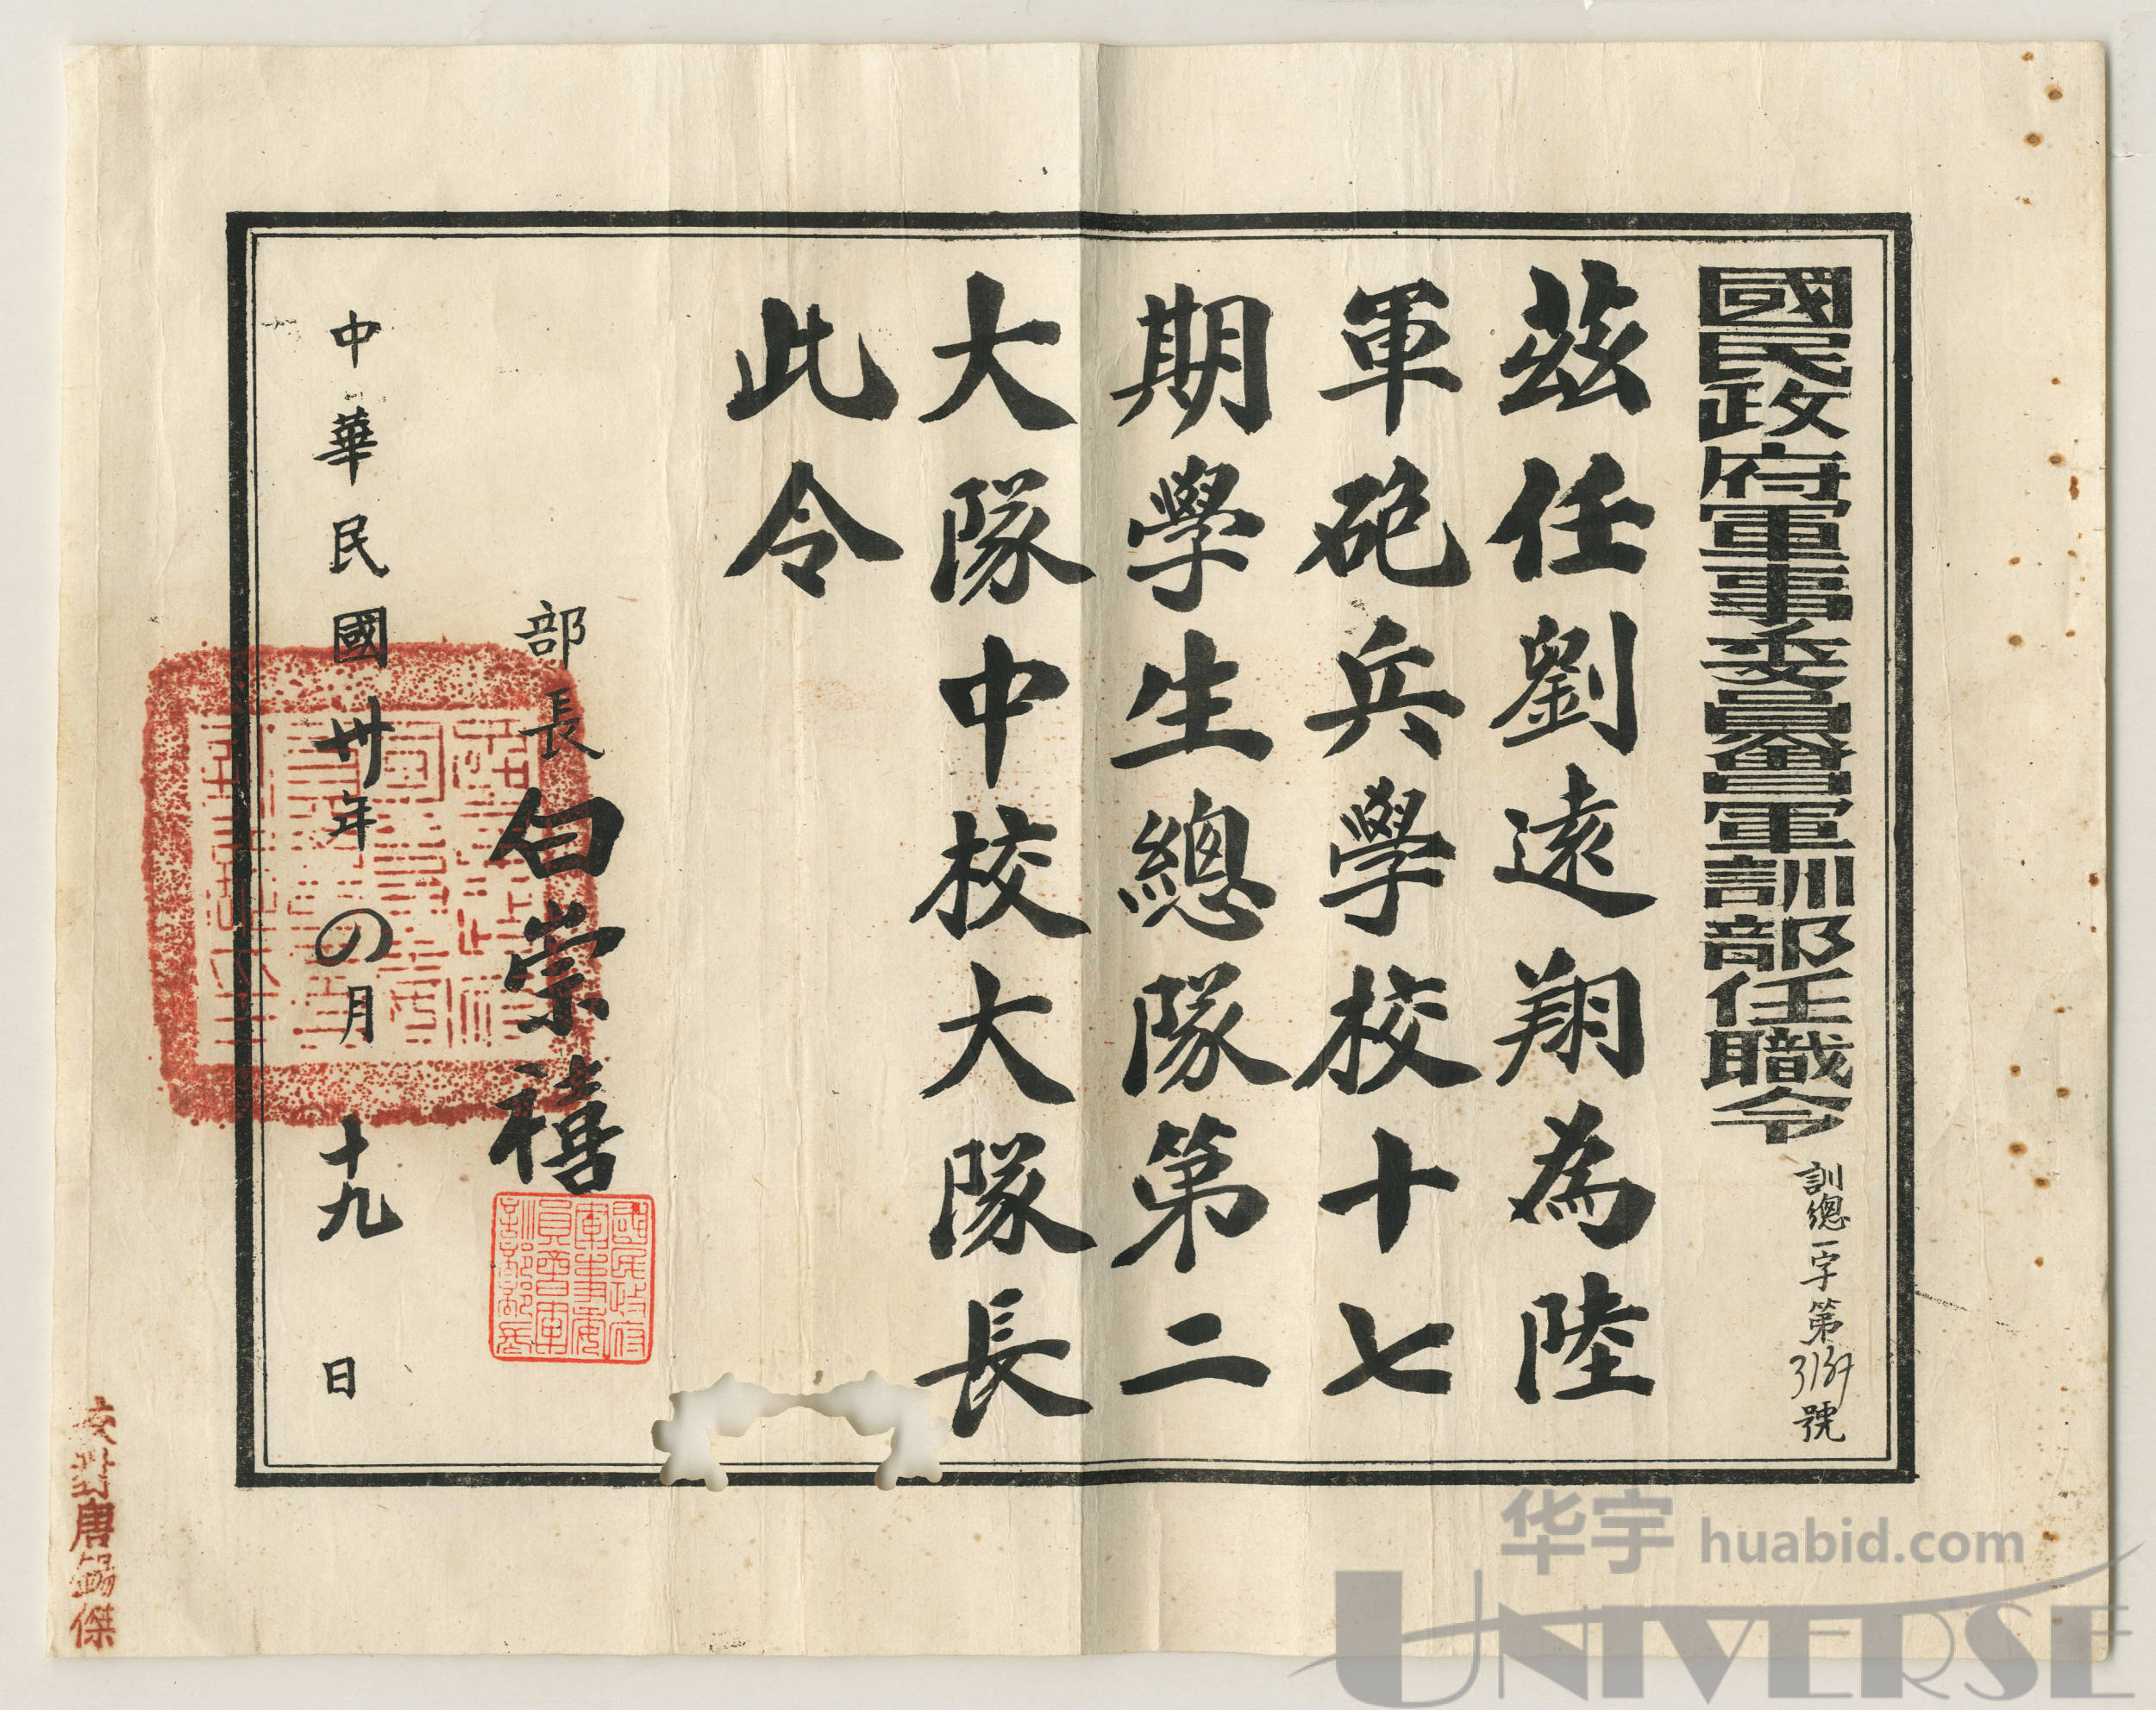 國民政府軍事委員會軍訓部任職令
訓總一字第號
茲任劉遠翔為陸
軍砲兵學校十七
期學生總隊第二
大隊中校大隊長
此令
部長白崇禧
國民政府軍事委員會軍訓部部長
中華民國卅年の月十九日
校對唐錫傑
华宇 huabid.com
UNIVERSE